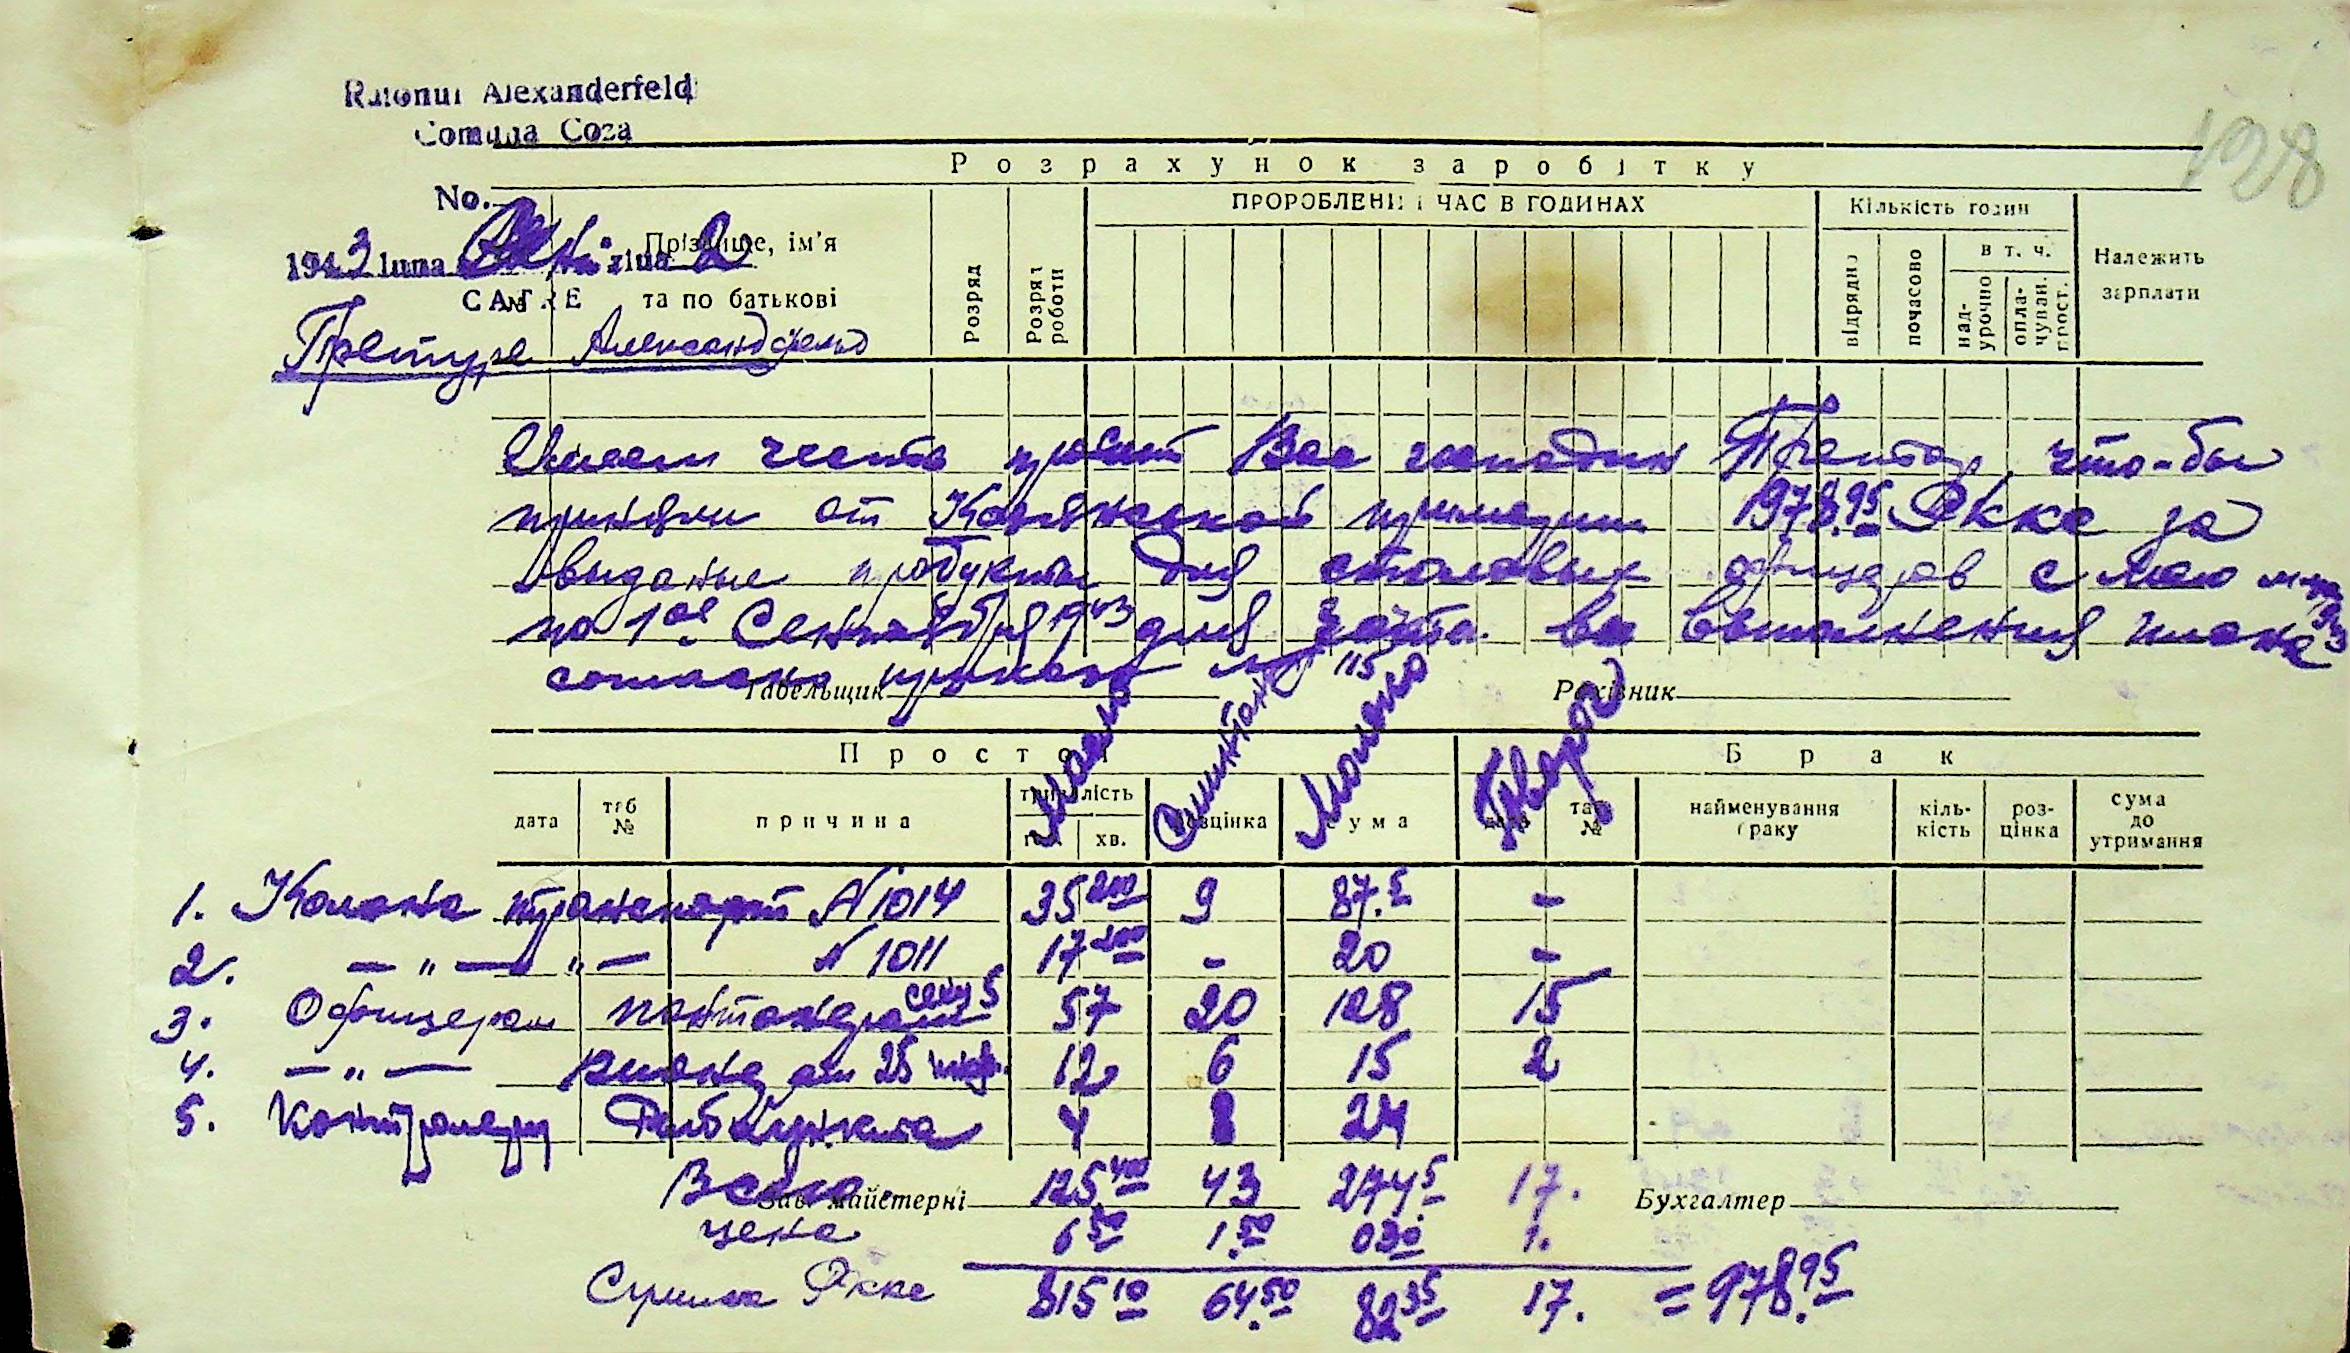 Raionul Alexanderfeld
Comuna Coza
128
Розрахунок заробітку
No.
ПРОРОБЛЕНИЙ ЧАС В ГОДИНАХ
Кількість годин
Прізвище, ім'я
та по батькові
1943 luna ziua 2
№
CATRE
Розряд
Розряд роботи
відрядно
почасово
в т. ч.
над-урочно
опла-чуван. прост.
Належить зарплати
Претуре Александрфельд
Имеем честь просит Вас господин Претор, что-бы
приняли от примарии 1978.95 Ркке за
выданые продукты для столовых офицеров с Мая
по 1ое Сентября 1943 для зачота выполнения плана
согласно приказа 115
Табельщик
Рахівник
Масло
Сметана
Молоко
Творог
Простої
Брак
дата
таб №
причина
тривалість
год.
хв.
розцінка
сума
дата
таб №
найменування браку
кіль-кість
роз-цінка
сума до утримання
1. Колона транспорт N 1014 95 200 9 87.5 –
2. — " — " — N 1011 17 200 – 20 –
3. Офицерам 57 20 128 15
4. — " — 12 6 15 2
5. Контролеру 4 8 24
Всего 125 400 43 274 5 17.
Зав. майстерні
Бухгалтер
цена 6 50 1.50 0 30 1.
Сумма Ркке 815 10 64.50 82 35 17. = 978.95